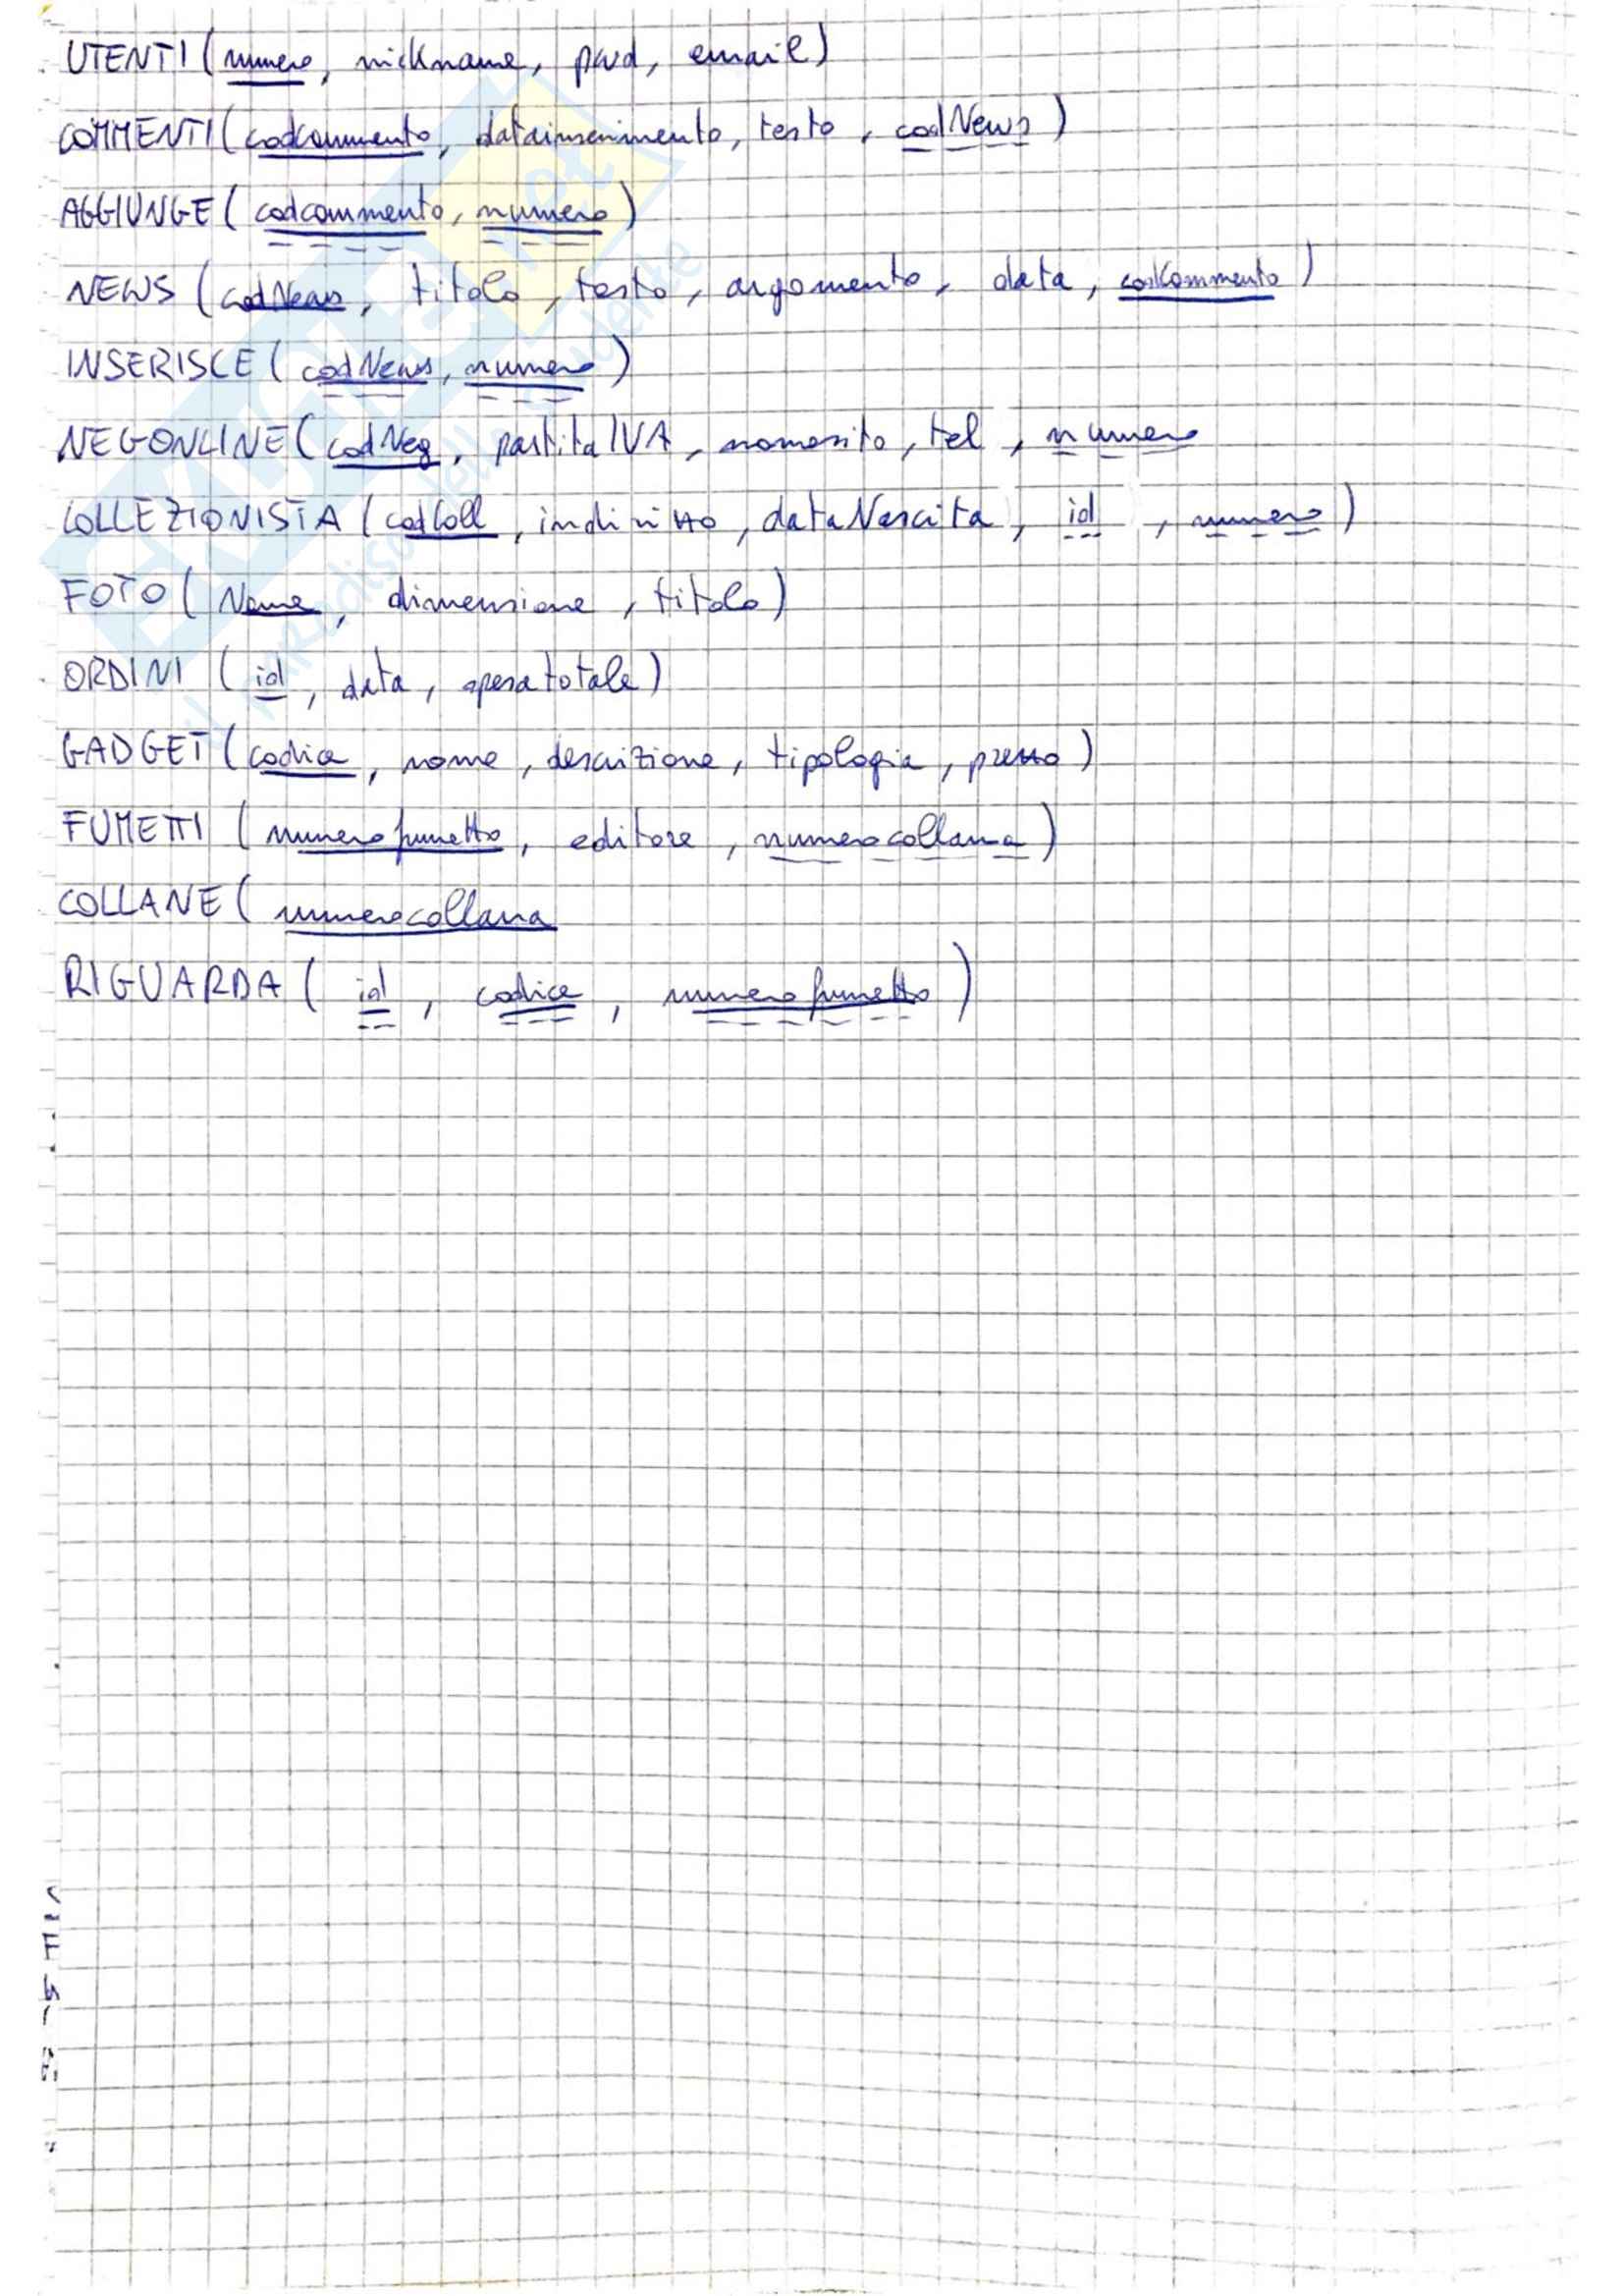 UTENTI (numero, nickname, pwd, email)
COMMENTI (codcommento, datainserimento, testo, codNews)
AGGIUNGE (codcommento, numero)
NEWS (codNews, titolo, testo, argomento, data, codCommento)
INSERISCE (codNews, numero)
NEGONLINE (codNeg, partitaIVA, nomesito, tel, numero
COLLEZIONISTA (codColl, indirizzo, dataNascita, id, numero)
FOTO (Nome, dimensione, titolo)
ORDINI (id, data, spesatotale)
GADGET (codice, nome, descrizione, tipologia, prezzo)
FUMETTI (numerofumetto, editore, numerocollana)
COLLANE (numerocollana
RIGUARDA (id, codice, numerofumetto)